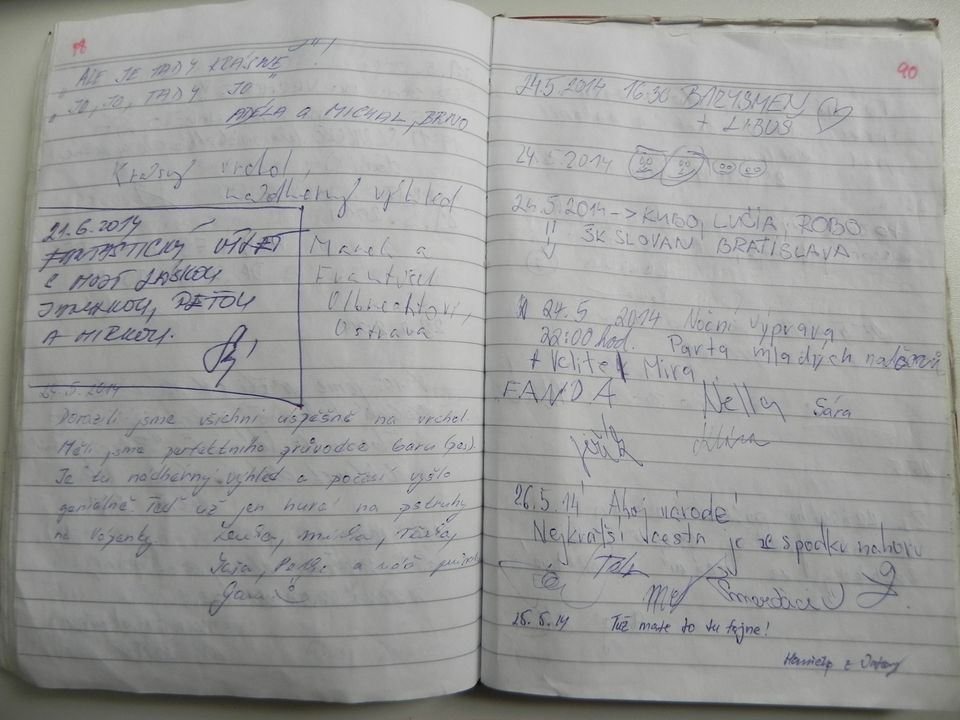 „ALE JE TADY KRÁSNĚ"!
„JO, JO, TADY JO"
ADÉLA a MICHAL, BRNO
Krásný vrchol,
nádherný výhled
Marek a
František
Olbrechtovi,
Ostrava
21.6.2014
FANTASTICKÝ VÝLET
S MOJÍ LÁSKOU
PEŤOU
A MIRKOU.
24.5.2014
Dorazili jsme všichni úspěšně na vrchol.
Měli jsme perfektního průvodce baru (pes).
Je tu nádherný výhled a počasí vyšlo
geniálně. Teď už jen hurá na pstruhy
na
a náš
90
24.5.2014 16:30 BARYSMEN
+ LIBUŠ
24.5.2014
24.5.2014 -> KUBO, LUČIA, ROBO
ŠK SLOVAN BRATISLAVA
24.5 2014 Noční výprava
22:00 hod. Parta mladých
+ Velitel Mira
FANDA Nella Sára
26.5.14 Ahoj národe!
Nejkratší cesta je ze spodku nahoru
Smraďáci
25.5.14 Tuž mate to tu fajne!